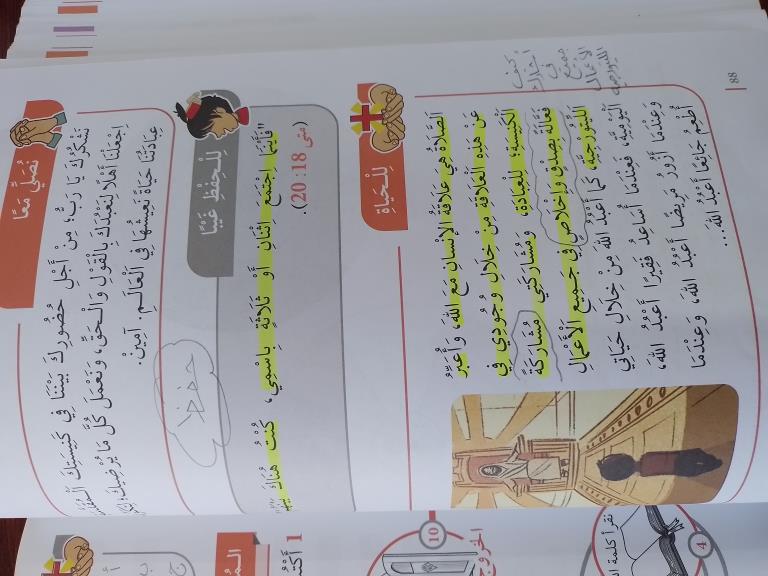 نُصَلِّي مَعًا
نَشْكُرُكَ يَا رَبُّ، مِنْ أَجْلِ حُضُورِكَ بَيْنَنَا فِي كَنِيسَتِكَ
اِجْعَلْنَا أَهْلًا لِنَعْبُدَكَ بِالْقَوْلِ وَالْحَقِّ، وَنَعْمَلَ كُلَّ مَا يُرْضِيكَ؛
عِبَادَتُنَا حَيَاةً نَعِيشُهَا فِي الْعَالَمِ. آمِينْ.
حفظ
لِلْحِفْظِ غَيْبًا
"فَأَيْنَمَا اجْتَمَعَ اثْنَانِ أَوْ ثَلَاثَةٌ بِاسْمِي، كُنْتُ هُنَاكَ
(متى 18: 20).
لِلْحَيَاةِ
اَلصَّلَاةُ هِيَ عَلَاقَةُ الْإِنْسَانِ مَعَ اللهِ، وَأُعَبِّرُ
عَنْ هَذِهِ الْعَلَاقَةِ مِنْ خِلَالِ وُجُودِي فِي
الْكَنِيسَةِ؛ لِلْعِبَادَةِ، وَمُشَارَكَتِي مُشَارَكَةً
فَعَّالَةً بِصِدْقٍ وَإِخْلَاصٍ فِي جَمِيعِ الْأَعْمَالِ
اللِّيتُورْجِيَّةِ، كَمَا أَعْبُدُ اللهَ مِنْ خِلَالِ حَيَاتِي
الْيَوْمِيَّةِ، فَعِنْدَمَا أُسَاعِدُ فَقِيرًا أَعْبُدُ اللهَ،
وَعِنْدَمَا أَزُورُ مَرِيضًا أَعْبُدُ اللهَ، وَعِنْدَمَا
أُطْعِمُ جَائِعًا أَعْبُدُ اللهَ...
كيف
أشارك
في
جميع
الأعمال
الليتورجية
88
1
10
الخروج
4
نقرأ كلمة